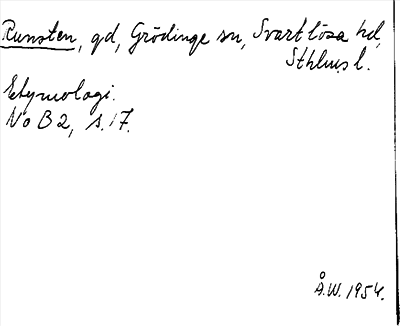 Runsten, gd, Grödinge sn, Svartlösa hd,
Sthlms l.
Etymologi.
No B 2, s. 17.
Å.W. 1954.